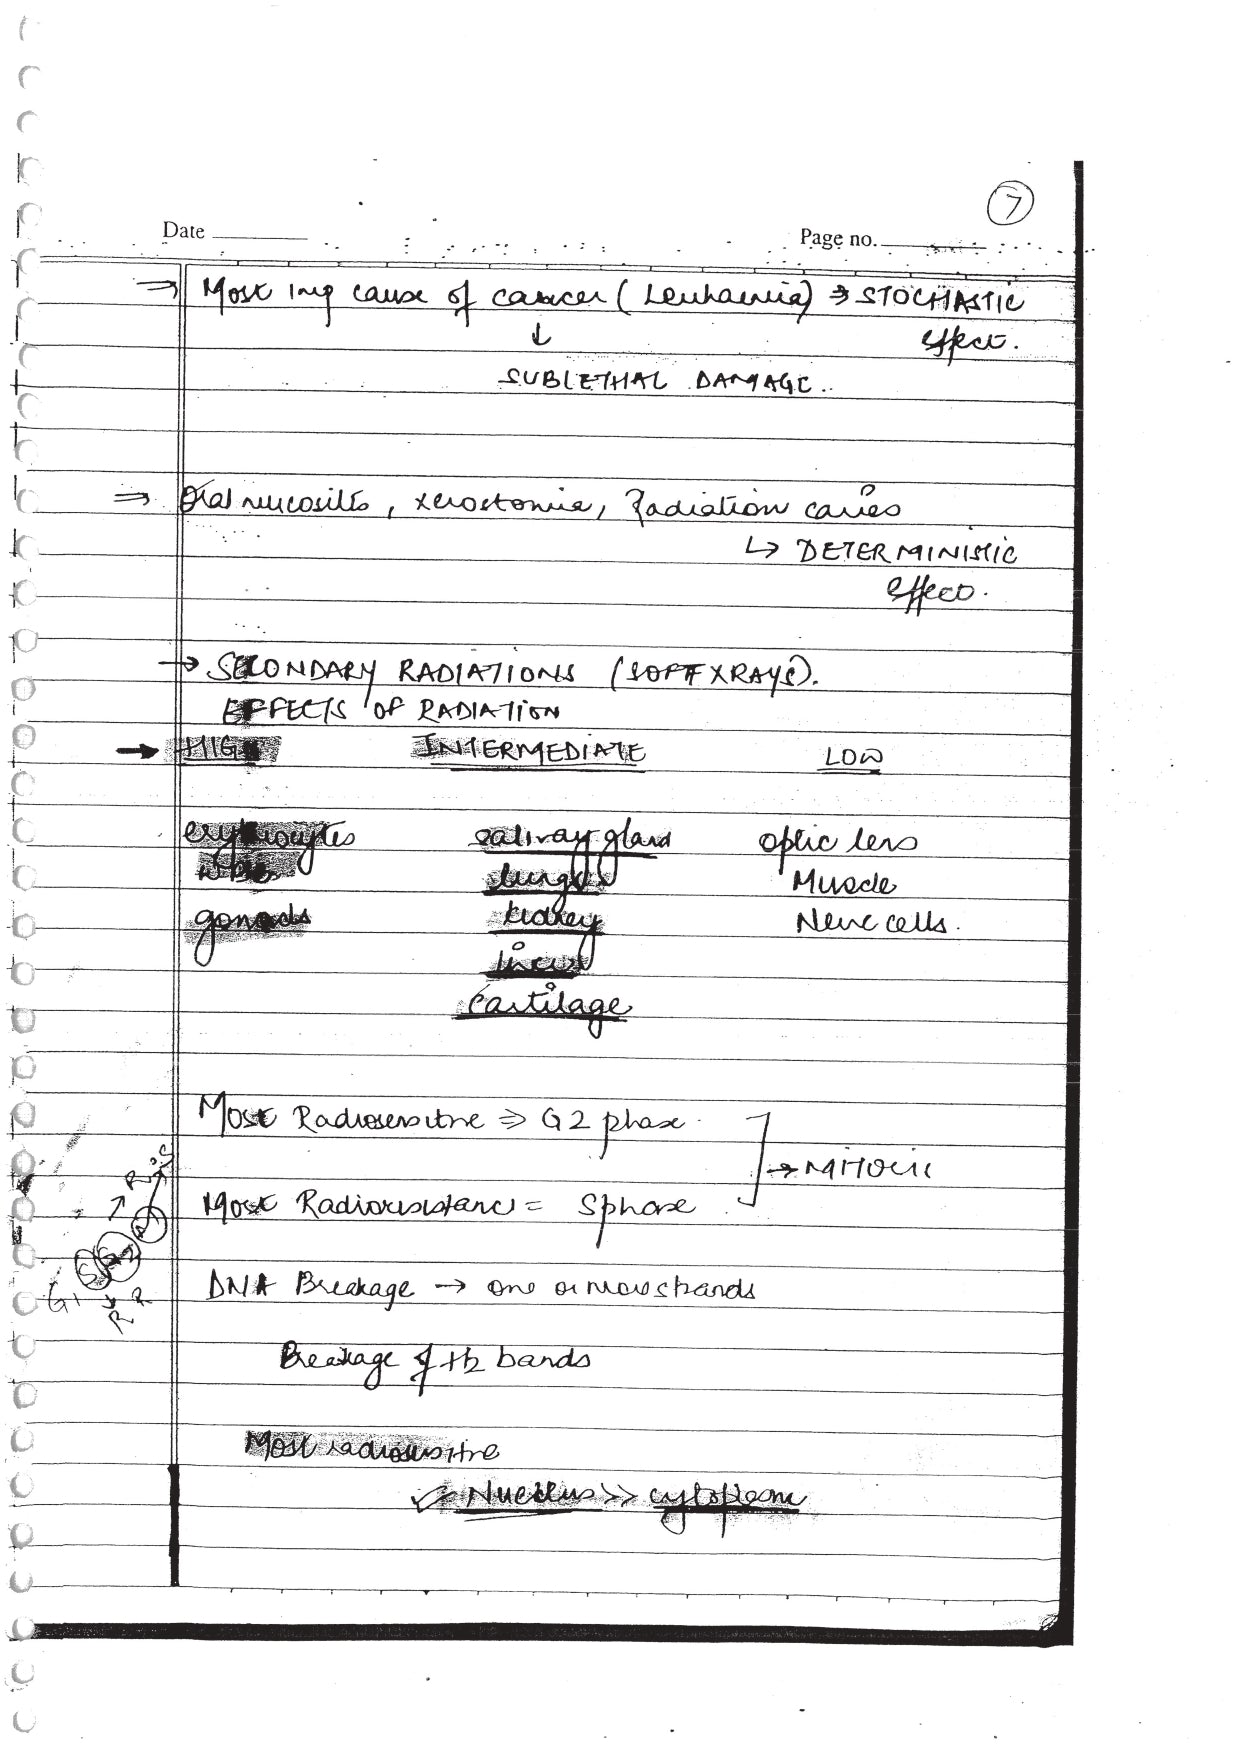 7
Date
Page no.
⇒ Most imp cause of cancer (Leukaemia) ⇒ STOCHASTIC
effect.
↓
SUBLETHAL DAMAGE.
⇒ Oral mucositis, xerostomia, Radiation caries
↳ DETERMINISTIC
effect.
→ SECONDARY RADIATIONS (SOFT XRAYS).
EFFECTS OF RADIATION
→ HIGH INTERMEDIATE LOW
erythrocytes salivay gland optic lens
lungs Muscle
gonads kidney Nerve cells.
Cartilage
Most Radiosensitive ⇒ G2 phase.
→ MITOCIS
Most Radioresistance = S phase
DNA Breakage → one or more strands
Breakage of H2 bands
Most radiosensitive
Nucleus >> cytoplasm